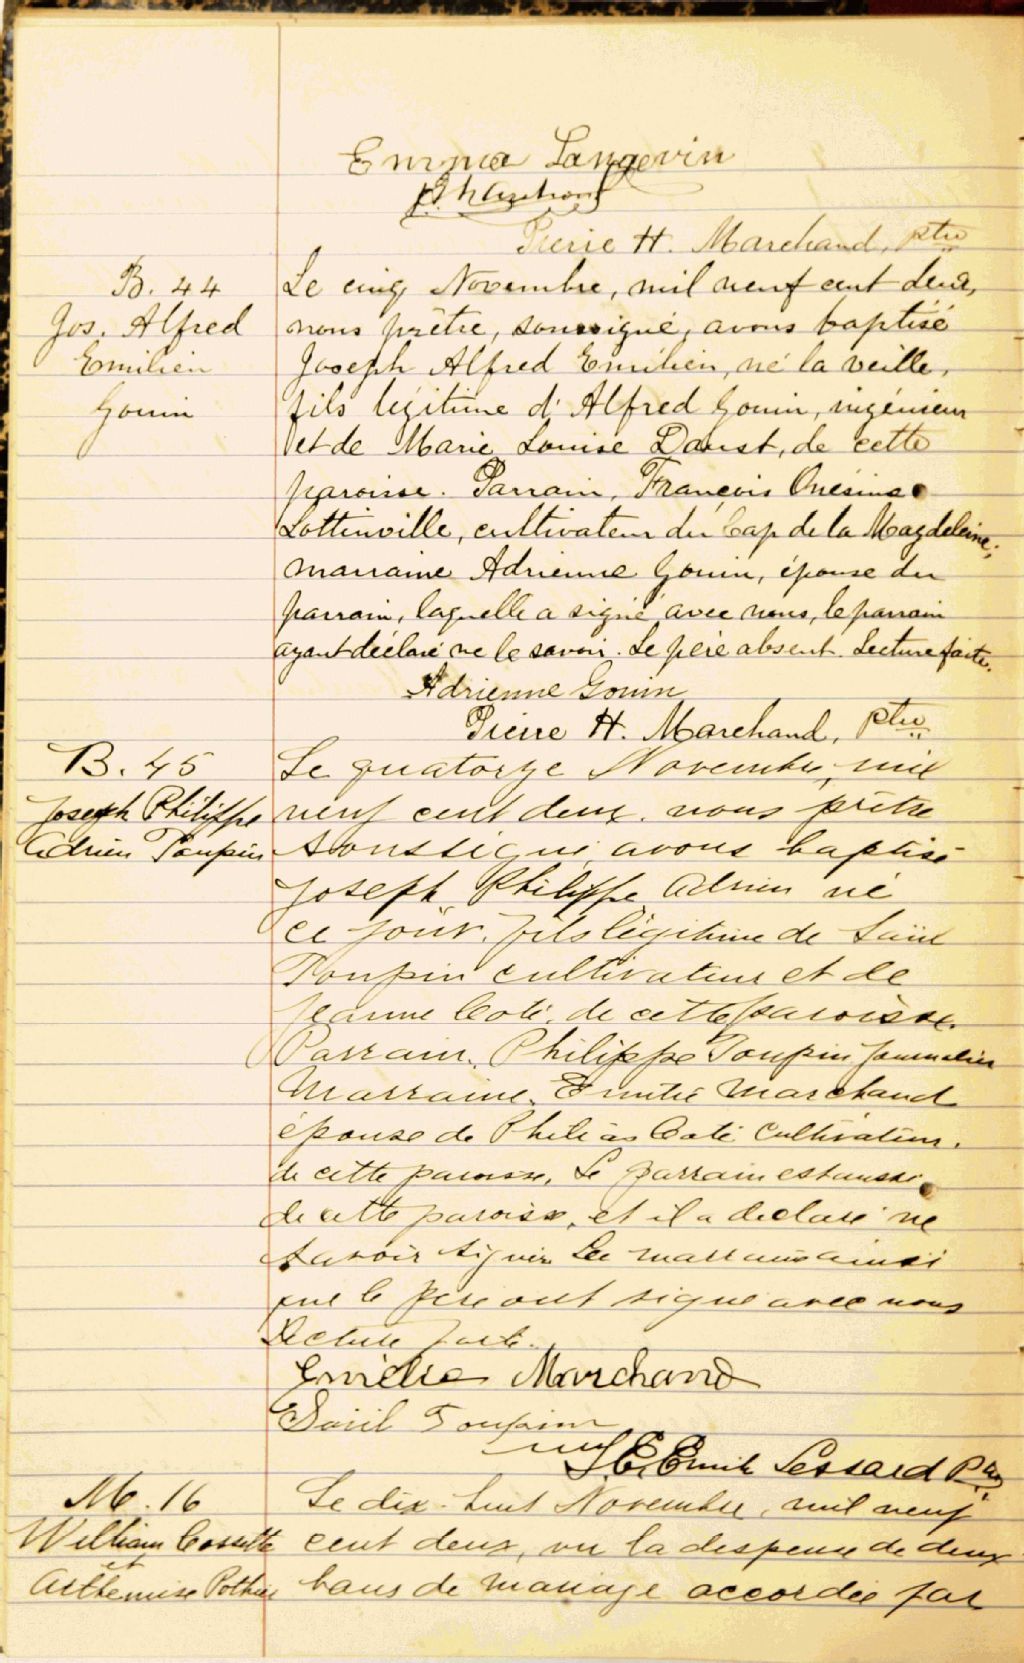 Emma Langevin
Pierre H. Marchand, ptre
B. 44
Jos. Alfred
Emilien
Gouin
Le cinq Novembre, mil neuf cent deux,
nous prêtre, soussigné, avons baptisé
Joseph Alfred Emilien, né la veille,
fils légitime d'Alfred Gouin, ingénieur
et de Marie Louise Daust, de cette
paroisse. Parrain, François Onésime
Lottinville, cultivateur du Cap de la Magdeleine;
marraine Adrienne Gouin, épouse du
parrain, laquelle a signé avec nous, le parrain
ayant déclaré ne le savoir. Le père absent. Lecture faite.
Adrienne Gouin
Pierre H. Marchand, ptre
B. 45
Joseph Philippe
Adrien Toupin
Le quatorze Novembre, mil
neuf cent deux. nous prêtre
soussigné, avons baptisé
Joseph Philippe Adrien né
ce jour. fils légitime de
Toupin cultivateur et de
Jeanne Coté. de cette paroisse.
Parrain. Philippe Toupin journalier
Marraine. Emilie Marchand
épouse de Philias Coté cultivateur.
de cette paroisse. Le parrain est aussi
de cette paroisse, et il a declaré ne
savoir signer. La marraine ainsi
que le pere ont signé avec nous
Lecture faite.
Emélie Marchand
Toupin
J. E. Emile Lessard Ptre
M. 16
William Cossette
et
Arthemise Pothier
Le dix-huit Novembre, mil neuf
cent deux, vu la dispense de deux
bans de mariage accordée par